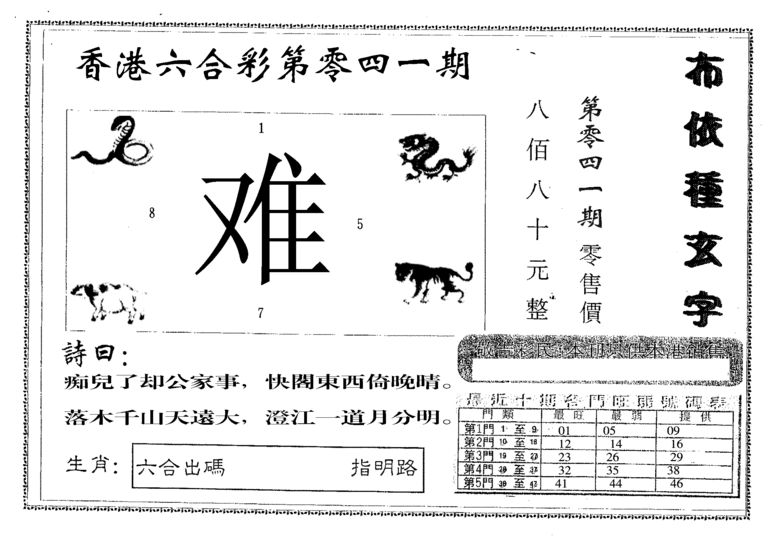 香港六合彩第零四一期
1
难
8
5
7
詩曰：
痴兒了却公家事，快閣東西倚晚晴。
落木千山天遠大，澄江一道月分明。
生肖：
六合出碼 指明路
第零四一期 零售價
八佰八十元整
布依種玄字
最近十期各門旺弱號碼表
門類 最旺 最弱 提供
第1門 1 至 9 01 05 09
第2門 10 至 18 12 14 16
第3門 19 至 23 26 29
第4門 至 32 35 38
第5門 至 41 44 46